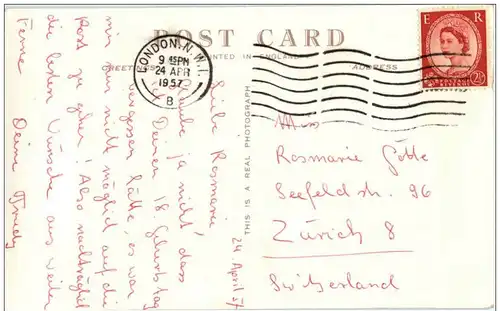 POST CARD
PRINTED IN ENGLAND
GREETINGS
ADDRESS
LONDON. N.W.1.
9 15PM
24 APR
1957
B
E R
2½
THIS IS A REAL PHOTOGRAPH
24. April 57
Liebe Rosmarie
Glaube ja nicht, dass
ich Deinen 18. Geburtstag
vergessen hätte, es war
mir nur nicht möglich auf die
Post zu gehen! Also nachträglich
die besten Wünsche aus weiter
Ferne
Deine Trudy
Miss
Rosmarie
Seefeldstr. 96
Zürich 8
Switzerland